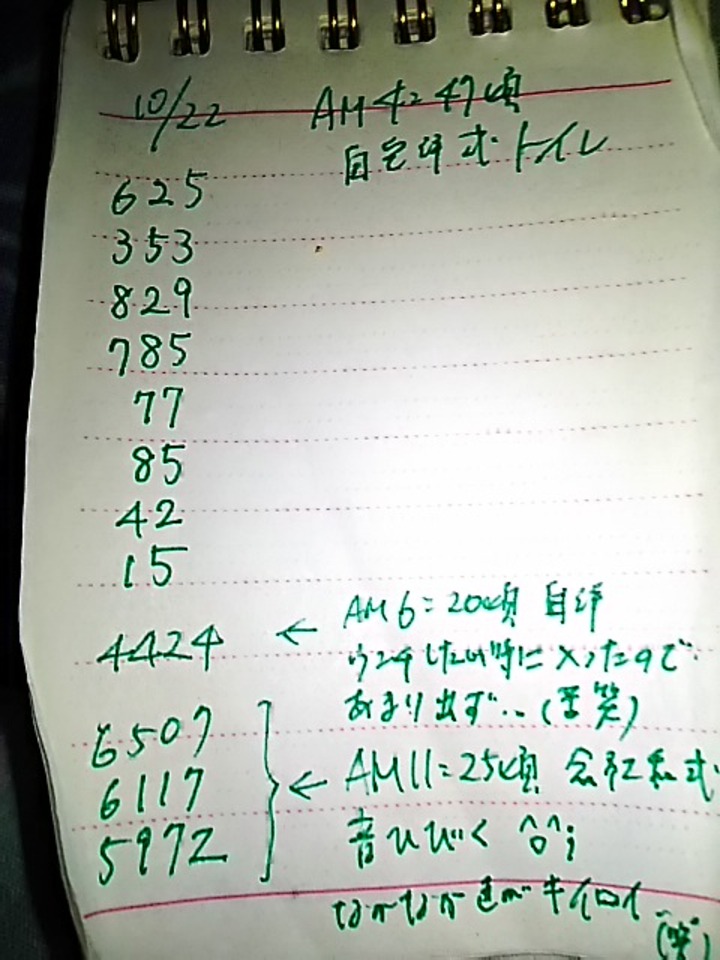 10/22 AM 4:47頃
自宅洋式トイレ
625
353
829
785
77
85
42
15
4424 ← AM6:20頃 自洋
ウンチしたい時に入ったので
あまり出ず…(苦笑)
6507
6117
5972
← AM11:25頃 会社和式
音ひびく ^o^;
なかなか色がキイロイ
(笑)